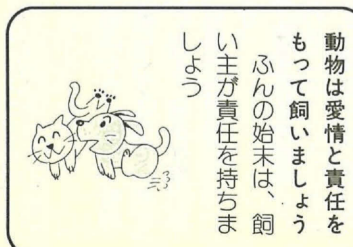 動物は愛情と責任を
もって飼いましょう
ふんの始末は、飼
い主が責任を持ちま
しょう